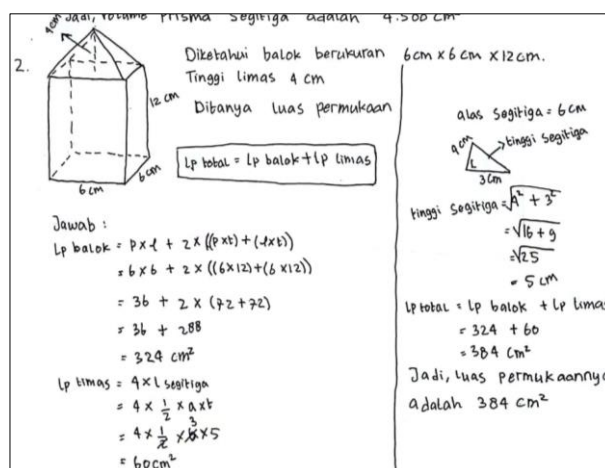 Jadi, volume prisma segitiga adalah 4.500 cm
2.
4cm
12 cm
6cm
6cm
Diketahui balok berukuran 6cm x 6cm x 12cm.
Tinggi limas 4 cm
Ditanya luas permukaan
Lp total = Lp balok + Lp limas
Jawab :
Lp balok = p x l + 2 x ((p x t) + (l x t))
= 6 x 6 + 2 x ((6 x 12) + (6 x 12))
= 36 + 2 x (72 + 72)
= 36 + 288
= 324 cm²
Lp limas = 4 x L segitiga
= 4 x 1/2 x a x t
= 4 x 1/2 x 6 3 x 5
= 60 cm²
alas segitiga = 6 cm
4cm
tinggi segitiga
3 cm
tinggi segitiga = √4² + 3²
= √16 + 9
= √25
= 5 cm
Lp total = Lp balok + Lp limas
= 324 + 60
= 384 cm²
Jadi, luas permukaannya
adalah 384 cm²